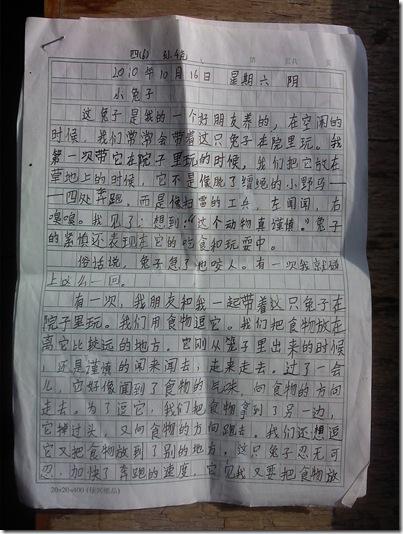 四(6) 孙
第 页共 页
2010年10月16日 星期六 阴
小兔子
这兔子是我的一个好朋友养的，在空闲的
时候，我们常常会带着这只兔子在院里玩。我
第一次带它在院子里玩的时候，我们把它放在
草地上的时候，它不是像脱了缰绳的小野马—
—四处奔跑，而是像扫雷的工兵，左闻闻，右
嗅嗅。我见了；想到：“这个动物真谨慎。”兔子
的谨慎还表现在它的吃食和玩耍中。
俗话说，兔子急了也咬人。有一次我就碰
上这么一回。
有一次，我朋友和我一起带着这只兔子在
院子里玩。我们用食物逗它。我们把食物放在
离它比较远的地方，它刚从笼子里出来的时候
，还是谨慎的闻来闻去，走来走去。过了一会
儿，它好像闻到了食物的气味，向食物的方向
走去。为了逗它，我们把食物拿到了另一边，
它掉过头，又向食物的方向跑去。我们还想逗
它又把食物放到了别的地方。这只兔子忍无可
忍，加快了奔跑的速度，它见我又要把食物放
20×20=400